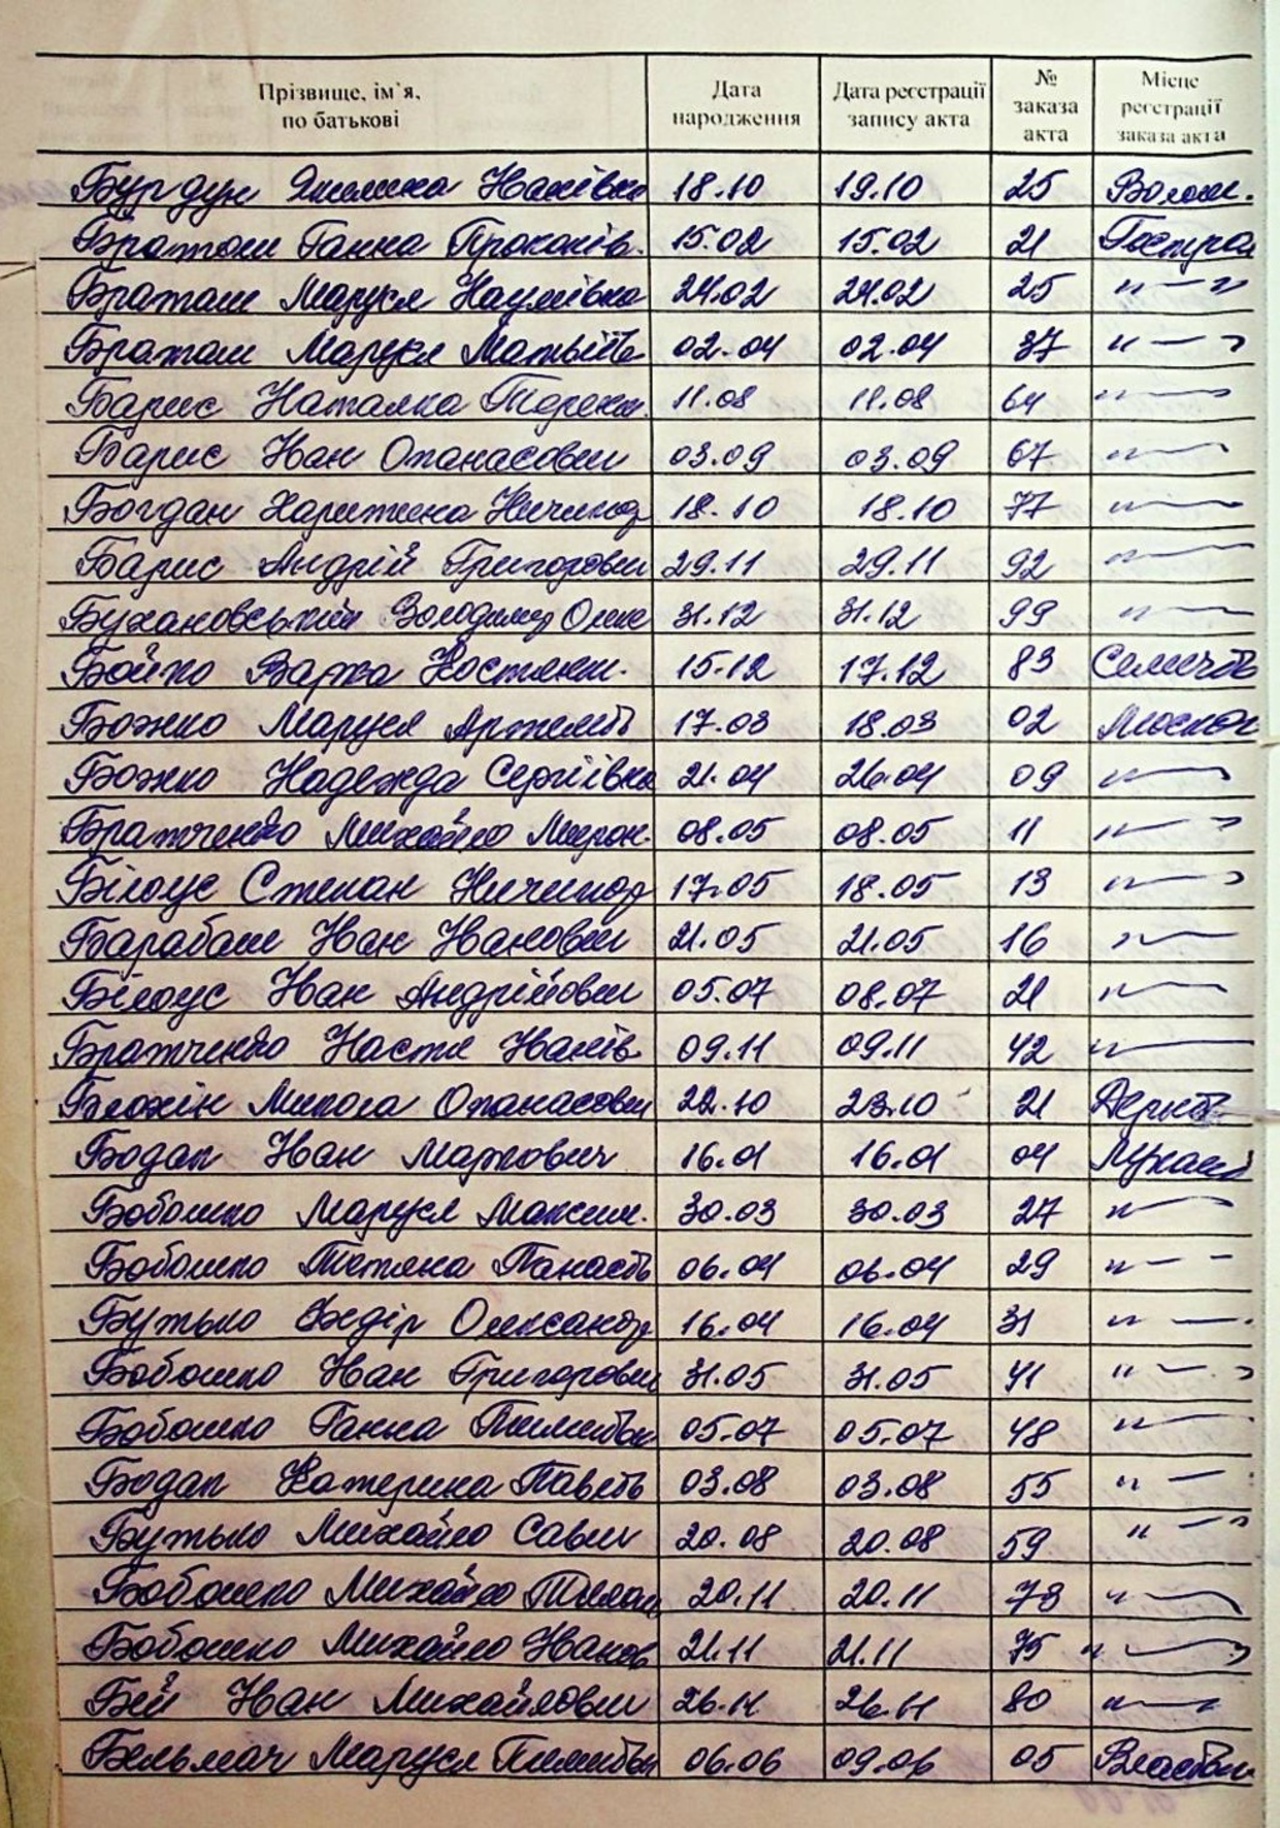 Прізвище, ім'я, по батькові Дата народження Дата реєстрації запису акта № заказа акта Місце реєстрації заказа акта
Бурдун Іванівна 18.10 19.10 25 Волош.
Браташ Ганна Прокопів. 15.02 15.02 21
Браташ Маруся Наумівна 24.02 24.02 25 " —
Браташ Маруся Матвіїв 02.04 02.04 37 " —
Барис Наталка 11.08 11.08 64 " —
Барис Іван Опанасович 03.09 03.09 67 " —
Богдан Харитина Ничипор 18.10 18.10 77 " —
Барис Андрій Григорович 29.11 29.11 92 " —
Бухановський Володимир Олек 31.12 31.12 99 " —
Бойко Варка Костянт. 15.12 17.12 83
Божко Маруся Артемів 17.03 18.03 02
Божко Надежда Сергіївна 21.04 26.04 09 " —
Братченко Михайло Мирон. 08.05 08.05 11 " —
Білоус Степан Ничипор 17.05 18.05 13 " —
Барабаш Іван Іванович 21.05 21.05 16 " —
Білоус Іван Андрійович 05.07 08.07 21 " —
Братченко Настя Іванів 09.11 09.11 42 " —
Блохін Микола Опанасович 22.10 23.10 21
Бодак Іван Маркович 16.01 16.01 04
Бобошко Маруся Максим. 30.03 30.03 27 " —
Бобошко Тетяна Панасів 06.04 06.04 29 " —
Бутько Федір Олександр 16.04 16.04 31 " —
Бобошко Іван Григорович 31.05 31.05 41 " —
Бобошко Ганна 05.07 05.07 48 " —
Бодак Катерина Павлів 03.08 03.08 55 " —
Бутько Михайло Савич 20.08 20.08 59 " —
Бобошко Михайло 20.11 20.11 73 " —
Бобошко Михайло Іванов 21.11 21.11 75 " —
Бей Іван Михайлович 26.11 26.11 80 " —
Бельмач Маруся 06.06 09.06 05